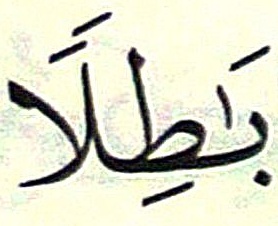 بَٰطِلًا